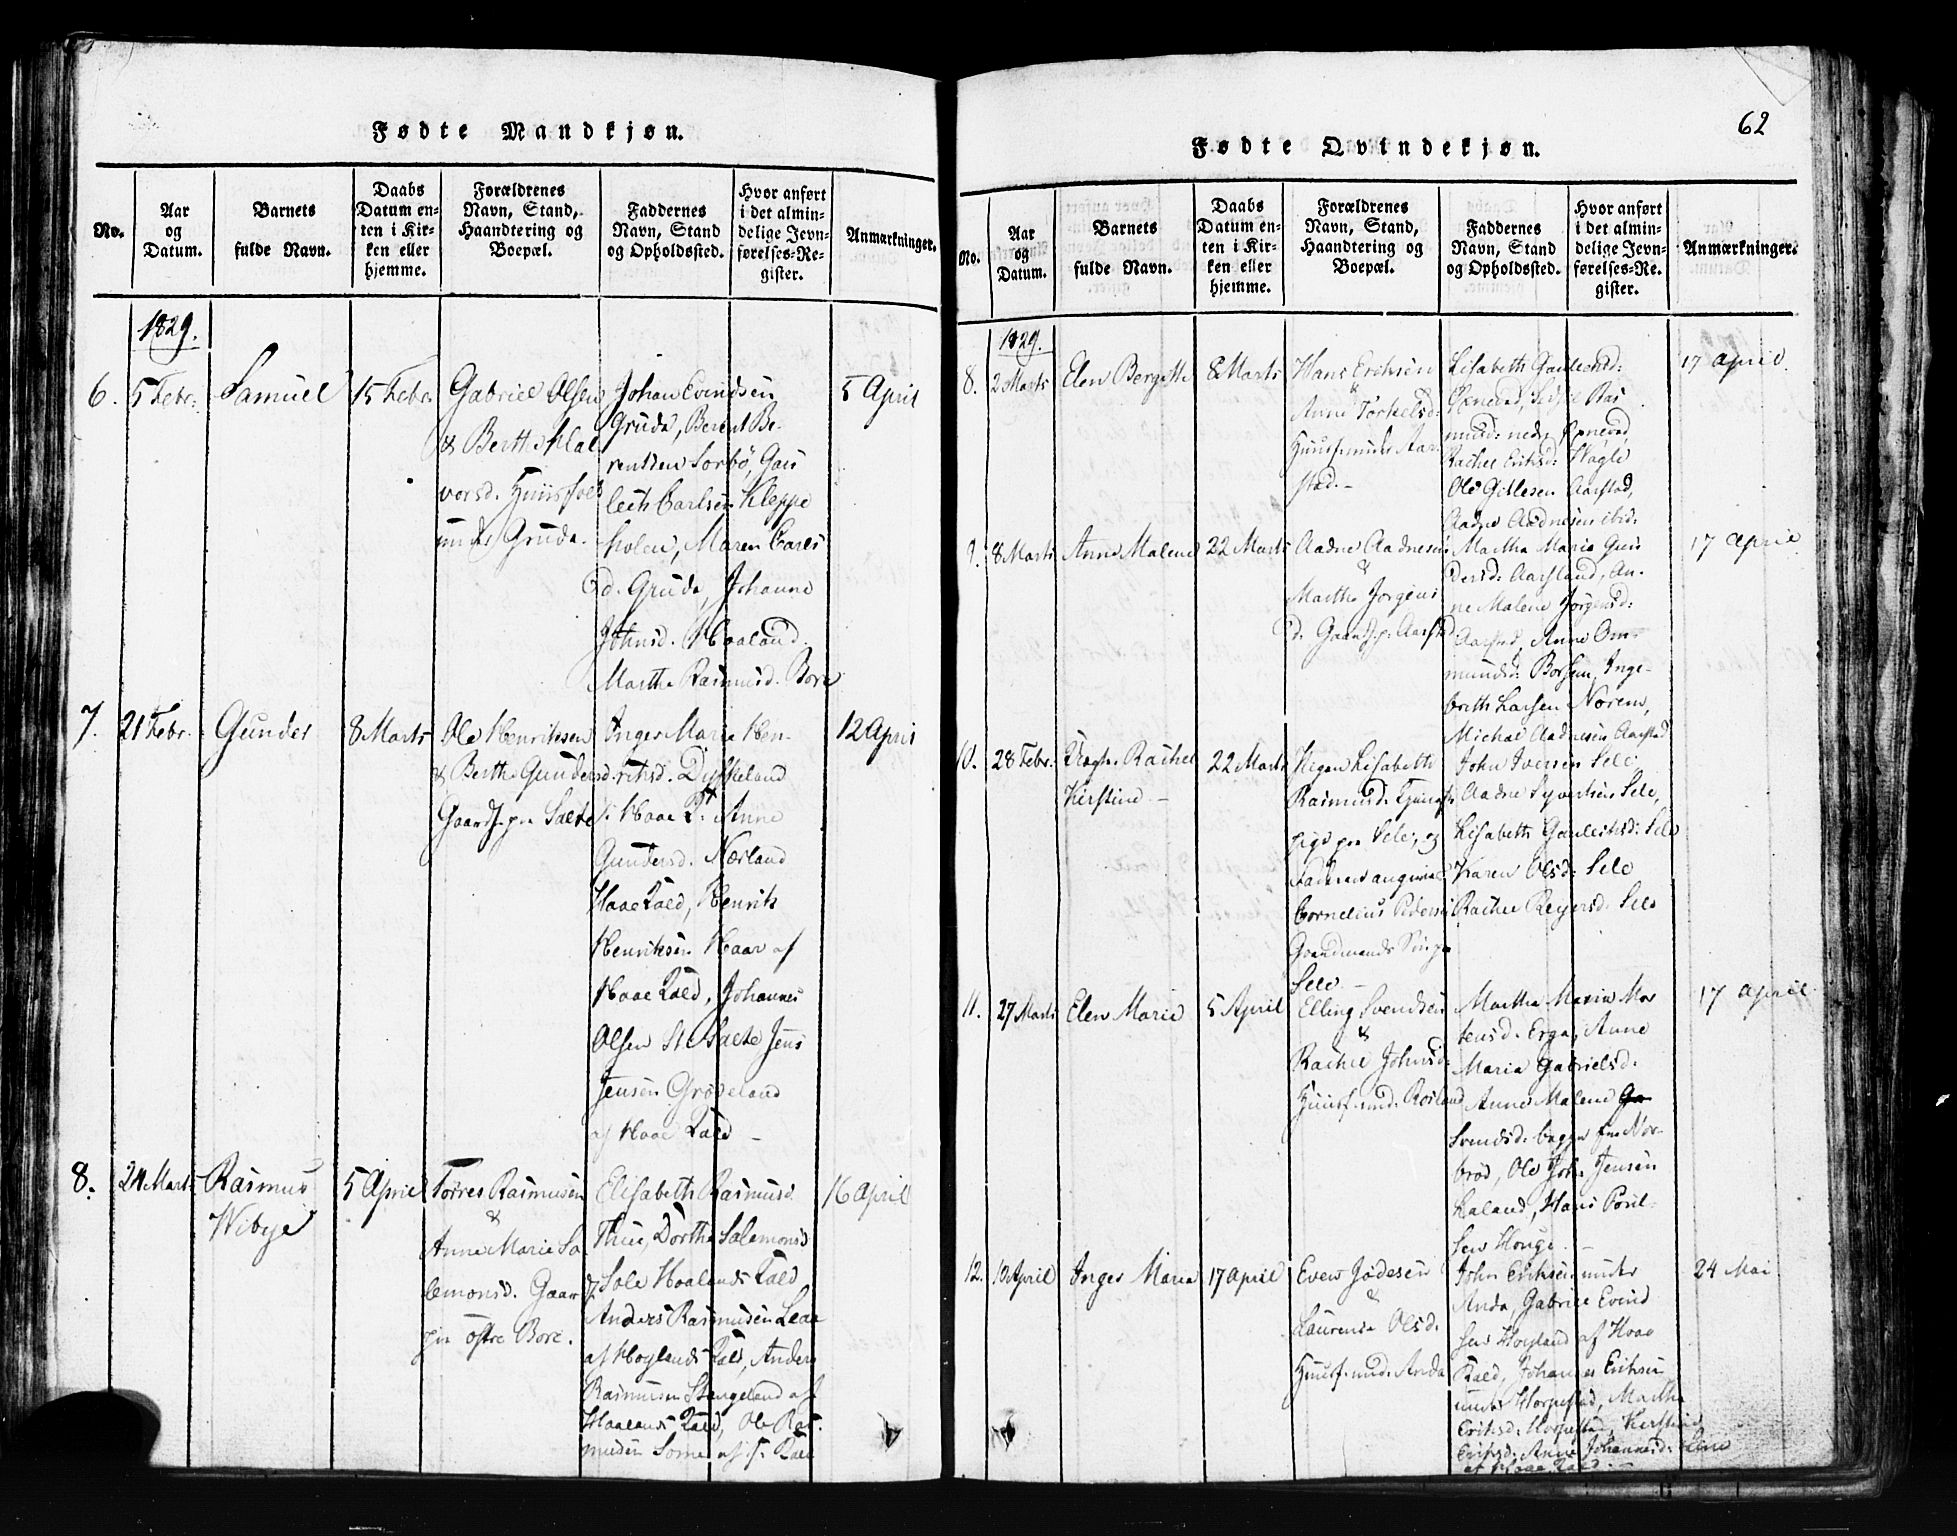 Fødte Mandkjøn.
No.
Aar
og
Datum.
Barnets
fulde Navn.
Daabs
Datum en-
ten i Kir-
ken eller
hjemme.
Forældrenes
Navn, Stand,
Haandtering og
Boepæl.
Faddernes
Navn, Stand
og Opholdssted.
Hvor anført
i det almin-
delige Jevn-
førelses-Re-
gister.
Anmærkninger.
1829.
6.
5 Febr:
Samuel
15 Febr
Gabriel Olsen
& Berthe Hal
vorsd. Huusfolk
under Gruda.
Johan Evindsen
Gruda, Berent Be-
rentsen Sorbö, Gau
leth Carlsen Kleppe
holen, Maren Carls
d. Gruda, Johanne
Johnsd. Haaland
Marthe Rasmusd. Bore
5 April
7.
21 Febr.
Gunder
8 Marts
Ole Henriksen
& Berthe Gundersd.
Gaardf. paa Salte
Inger Marie Hen-
riksd.
Anne
Gundersd. Nærland
Haae Kald, Henrik
Henriksen Haar af
Haae Kald, Johannes
Olsen St. Salte Jens
Jensen Grödeland
af Haae Kald
12 April
8.
24 Marts
Rasmus
Wibye
5 April
Torres Rasmusen
&
Anne Marie Sa
lemonsd. Gaardf.
paa östre Bore.
Elisabeth Rasmusd.
Thue, Dorthe Salemonsd
Sole Haalands Kald
Anders Rasmusen Leae
af Hoylands Kald, Anders
Rasmusen Stangeland af
Haalands Kald, Ole Ras
musen Some af s. Kald
16 April
62
Fødte Qvindekjøn.
No.
Aar
og
Datum.
Barnets
fulde Navn.
Daabs
Datum en-
ten i Kir-
ken eller
hjemme.
Forældrenes
Navn, Stand,
Haandtering og
Boepæl.
Faddernes
Navn, Stand
og Opholdssted.
Hvor anført
i det almin-
delige Jevn-
førelses-Re-
gister.
Anmærkninger.
1829.
8.
2 Marts
Elen Bergitte
8 Marts
Hans Eriksen
&
Anne Torkelsd:
Huusf. under Aar
stad.
Lisabeth Gaulethsd:
Rachel Eriksd: Hagle
Ole Gitlesen Aarstad,
Aadne Aadnesen ibid:
17 april
9.
8 Marts
Anne Malene
22 Marts
Aadne Aadnesen
&
Marthe Jorgens
d. Gaardf. p. Aarstad
Martha Maria Gun
dersd: Aarsland, An-
ne Malene Jörgensd:
Aarstad, Anne Om-
mundsd: Borsem, Inge-
breth Larsen Noreim,
Michael Aadnesen Aarstad
17 april
10.
28 Febr.
Rachel
Kirstine
22 Marts
Lisabeth
Rasmusd.
pige paa Sele, og
Faderen angivet
Cornelius Pedersen
Sele.
John Iversen Sele
Aadne Syvertsen Sele,
Lisabeth Gaulethsd: Sele
Karen Olsd: Sele
Rachel Reyersd. Sele
11.
27 Marts
Elen Marie
5 April
Elling Svendsen
&
Rachel Johnsd:
Huusf. und. Rosland
Martha Maria Mor
tensd. Erga, Anne
Maria Gabrielsd.
Anne Malene
Svendsd. begge fra Nor-
bröd, Ole Joh. Jensen
Laland, Hans Poul-
sen Houge.
17 april
12.
10 April
Inger Maria
17 april
Even Jödesen
&
Laurense Olsd.
Huusf. und. Anda
John Eriksen under
Anda, Gabriel Evind
sen Hoyland af Haae
Kald, Johannes Eriksen
under Horpestad, Martha
Eriksd. Horpestad, Kirstine
Eriksd. Anne Johannesd: Line
af Haae Kald.
24 Mai